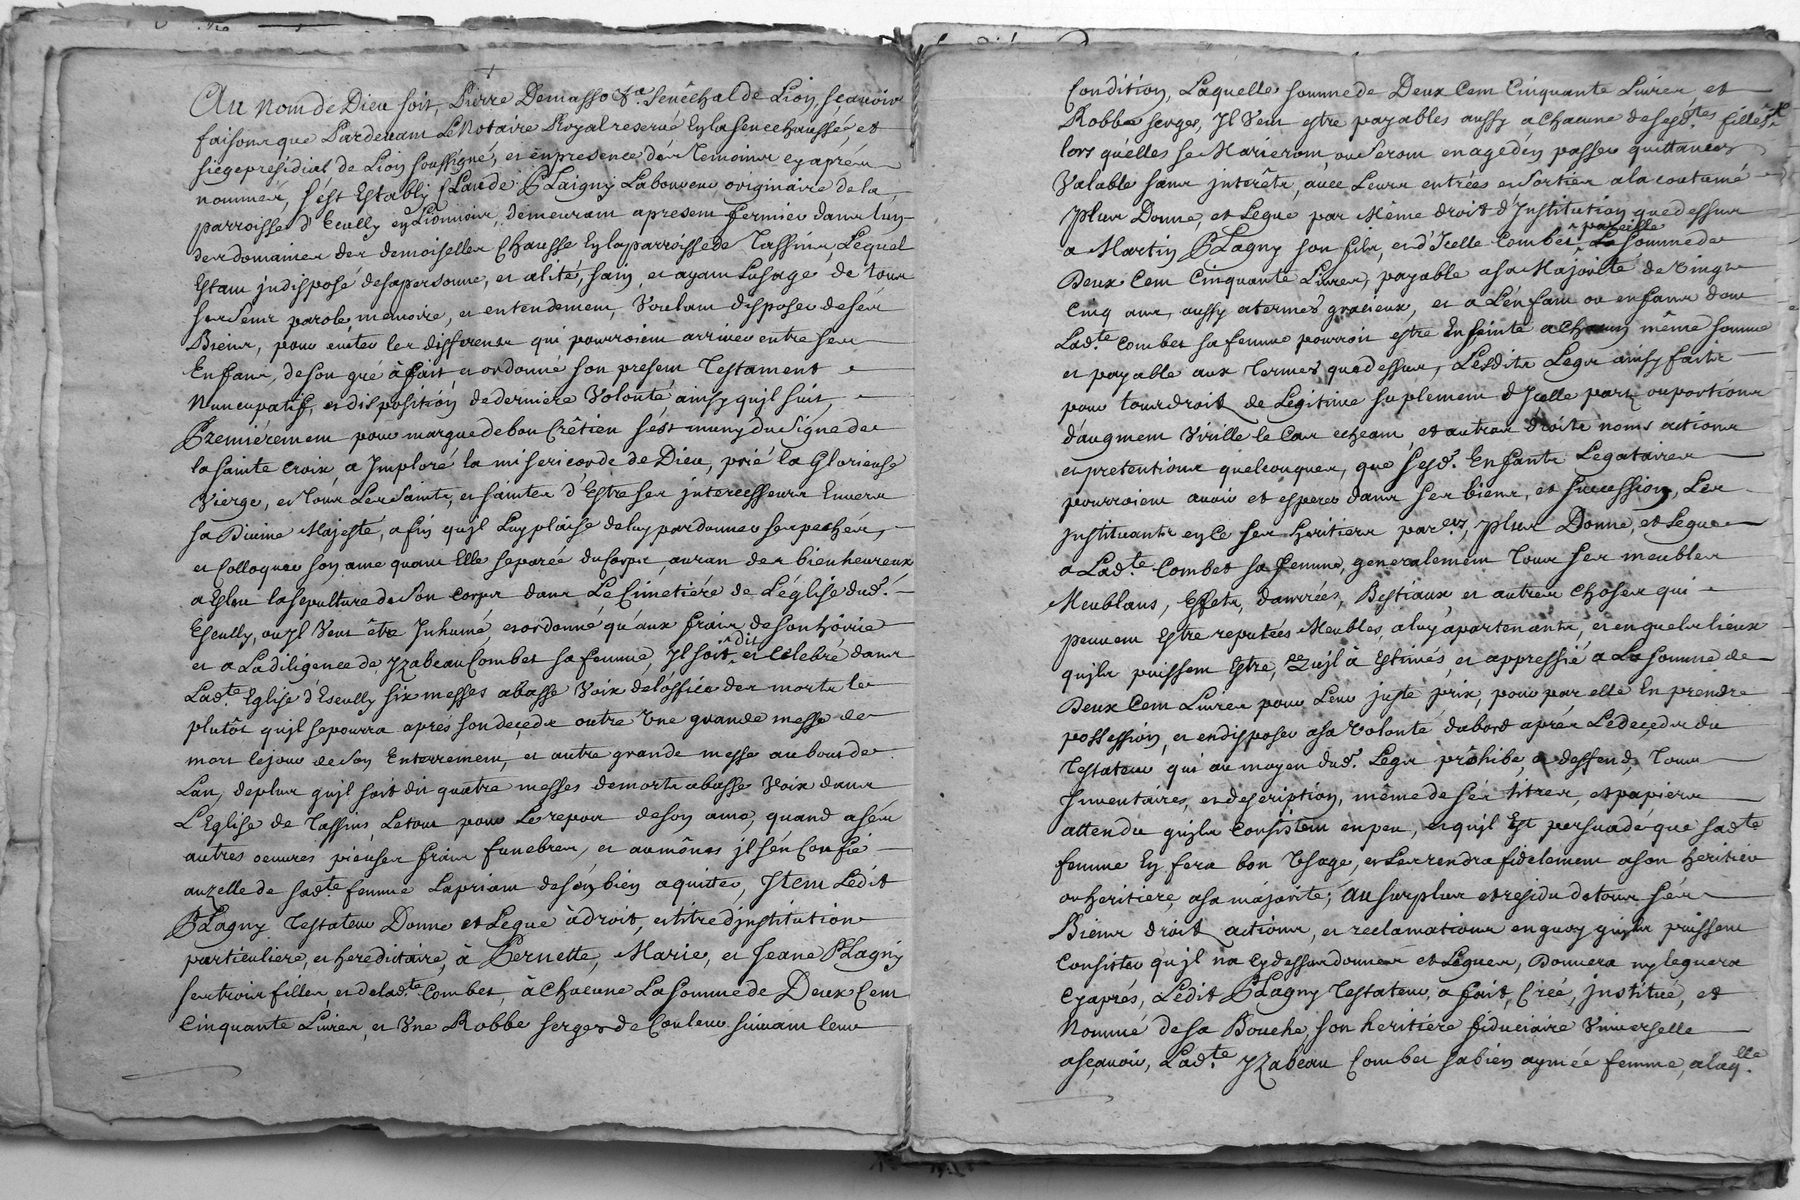 Au nom de Dieu soit, Pierre Demasso &a. Senêchal de Lion, sçavoir
faisons que Pardevant Le Notaire Royal reservé En la senechaussée, et
siege présidial de Lion soussigné, et en presence des Temoins cy après
nommés, s'est Estably Claude PLaigny Laboureur originaire de la
parroisse d'Ecully en Lionnois, demeurant apresent fermier dans l'un
des domaines des demoiselles Chausse En la parroisse de Tassins, Lequel
Estant jndisposé desa personne, et alité, sain, et ayant Lusage de tous
ses sens parole memoire, et entendement, Voulant disposer de ses
Biens, pour eviter les differents qui pourroient arriver entre ses
Enfans, de son gré à fait et ordonné son present Testament
Nuncupatif, et disposition de derniere Volonté ainsy qu'jl suit,
Premiérement pour marque de bon Crêtien s'est muny du Signe de
la sainte Croix a Jmploré la misericorde de Dieu, prié la Glorieuse
Vierge, et Tous Les Saints, et saintes d'Estre ses jntercesseurs Envers
sa Divine Majesté, afin qu'jl Luy plaise de luy pardonner ses pechés,
et Colloquer son ame quant Elle separée du Corps, au ran des bienheureux
a Eslu la sepulture de son Corps dans Le Cimetiére de L'église dud.
Escully, ou jl Veut être Jnhumé, et ordonné qu'aux fraix de son hoirie
et a La diligence de Yzabeau Combet sa femme, Jl soit dit et Célebré dans
Lad.te Eglise d'Escully six messes abasse Voix de l'office des morts le
plutôt qu'jl se pourra aprés son decéds outre Vne grande messe de
mort le jour de son Enterrement, et autre grande messe au bout de
Lan, de plus qu'jl soit dit quatre messes de morts abasse Voix dans
L'Eglise de Tassins, Le tout pour Le repos de son ame, quand a ses
autres oeuvres pieuses fraix funebres, et aumônes jl s'en Confie
au zelle de sad.te femme La priant de s'en bien aquitter, Jtem Ledit
PLagny Testateur Donne et Legue à droit, et titre d'jnstitution
particuliere, et hereditaire, à Pernette, Marie, et Jeane PLagny
ses trois filles, et de lad.te Combet, à Chacune La somme de Deux Cent
Cinquante Livres, et Vne Robbe serges de Couleur suivant leur
Condition, Laquelle somme de Deux Cent Cinquante Livres et
Robbe serges, Jl Veut estre payables aussy a Chacune de sesd.tes filles
lors qu'elles se Marieront ou seront en age d'en passer quittances
Valable sans jnterêts, avec Leurs entrées et sorties a la coutume
Plus Donne, et Legue par Même droit d'Jnstitution que dessus
a Martin PLagny son fils, et d'Jcelle Combet pareille somme de
Deux Cent Cinquante Livres, payable a sa Majorité de Vingt
Cinq ans, aussy a termes gracieux, et a L'enfant ou enfans dont
Lad.te Combet sa femme pourroit estre Enseinte a chacun même somme
et payable aux Termes que dessus, Lesdits Legs ainsy faits
pour tout droit de Legitime suplement d'Jcelle part ou portions
d'augment Virille le Cas echeant, et autres droits noms actions
et pretentions quelconques, que sesd. Enfants Legataires
pourroient avoir et esperer dans ses biens, et succession, Les
jnstituants en ce ses heritiers par.ers, Plus Donne, et Legue
a Lad.te Combet sa femme, generalement Tous ses meubles
Meublans, Effets, danrées, Bestiaux et autres Choses qui
peuvent Estre reputées Meubles, a luy apartenants, et en quels lieux
qu'jls puissent Estre, qu'jl à Estimés, et appressié a La somme de
Deux Cent Livres pour Leur juste prix, pour par elle En prendre
possession, et en disposer a sa Volonté dabord aprés Le deçéds du
Testateur qui au moyen dud. Legs prôhibe, et deffend, Tous
Jnventaires, et description, même de ses titres, et papiers
attendu qu'jls Consistent en peu, et qu'jl Est persuadé que sad.te
femme En fera bon Vsage, et Les rendra fidelement a son heritier
ou heritiere a sa majorité; Au surplus et residu de tous ses
Biens droits actions, et reclamations en quoy qu'jls puissent
Consister qu'jl n'a Cy dessus donnés et Legués, Donnera ny leguera
Cy aprés, Ledit PLagny Testateur a fait, Créé, jnstitué, et
Nommé de sa Bouche, son heritiére fiduciaire Vniverselle
a sçavoir, Lad.te Yzabeau Combet sa bien aymée femme, a laq.lle